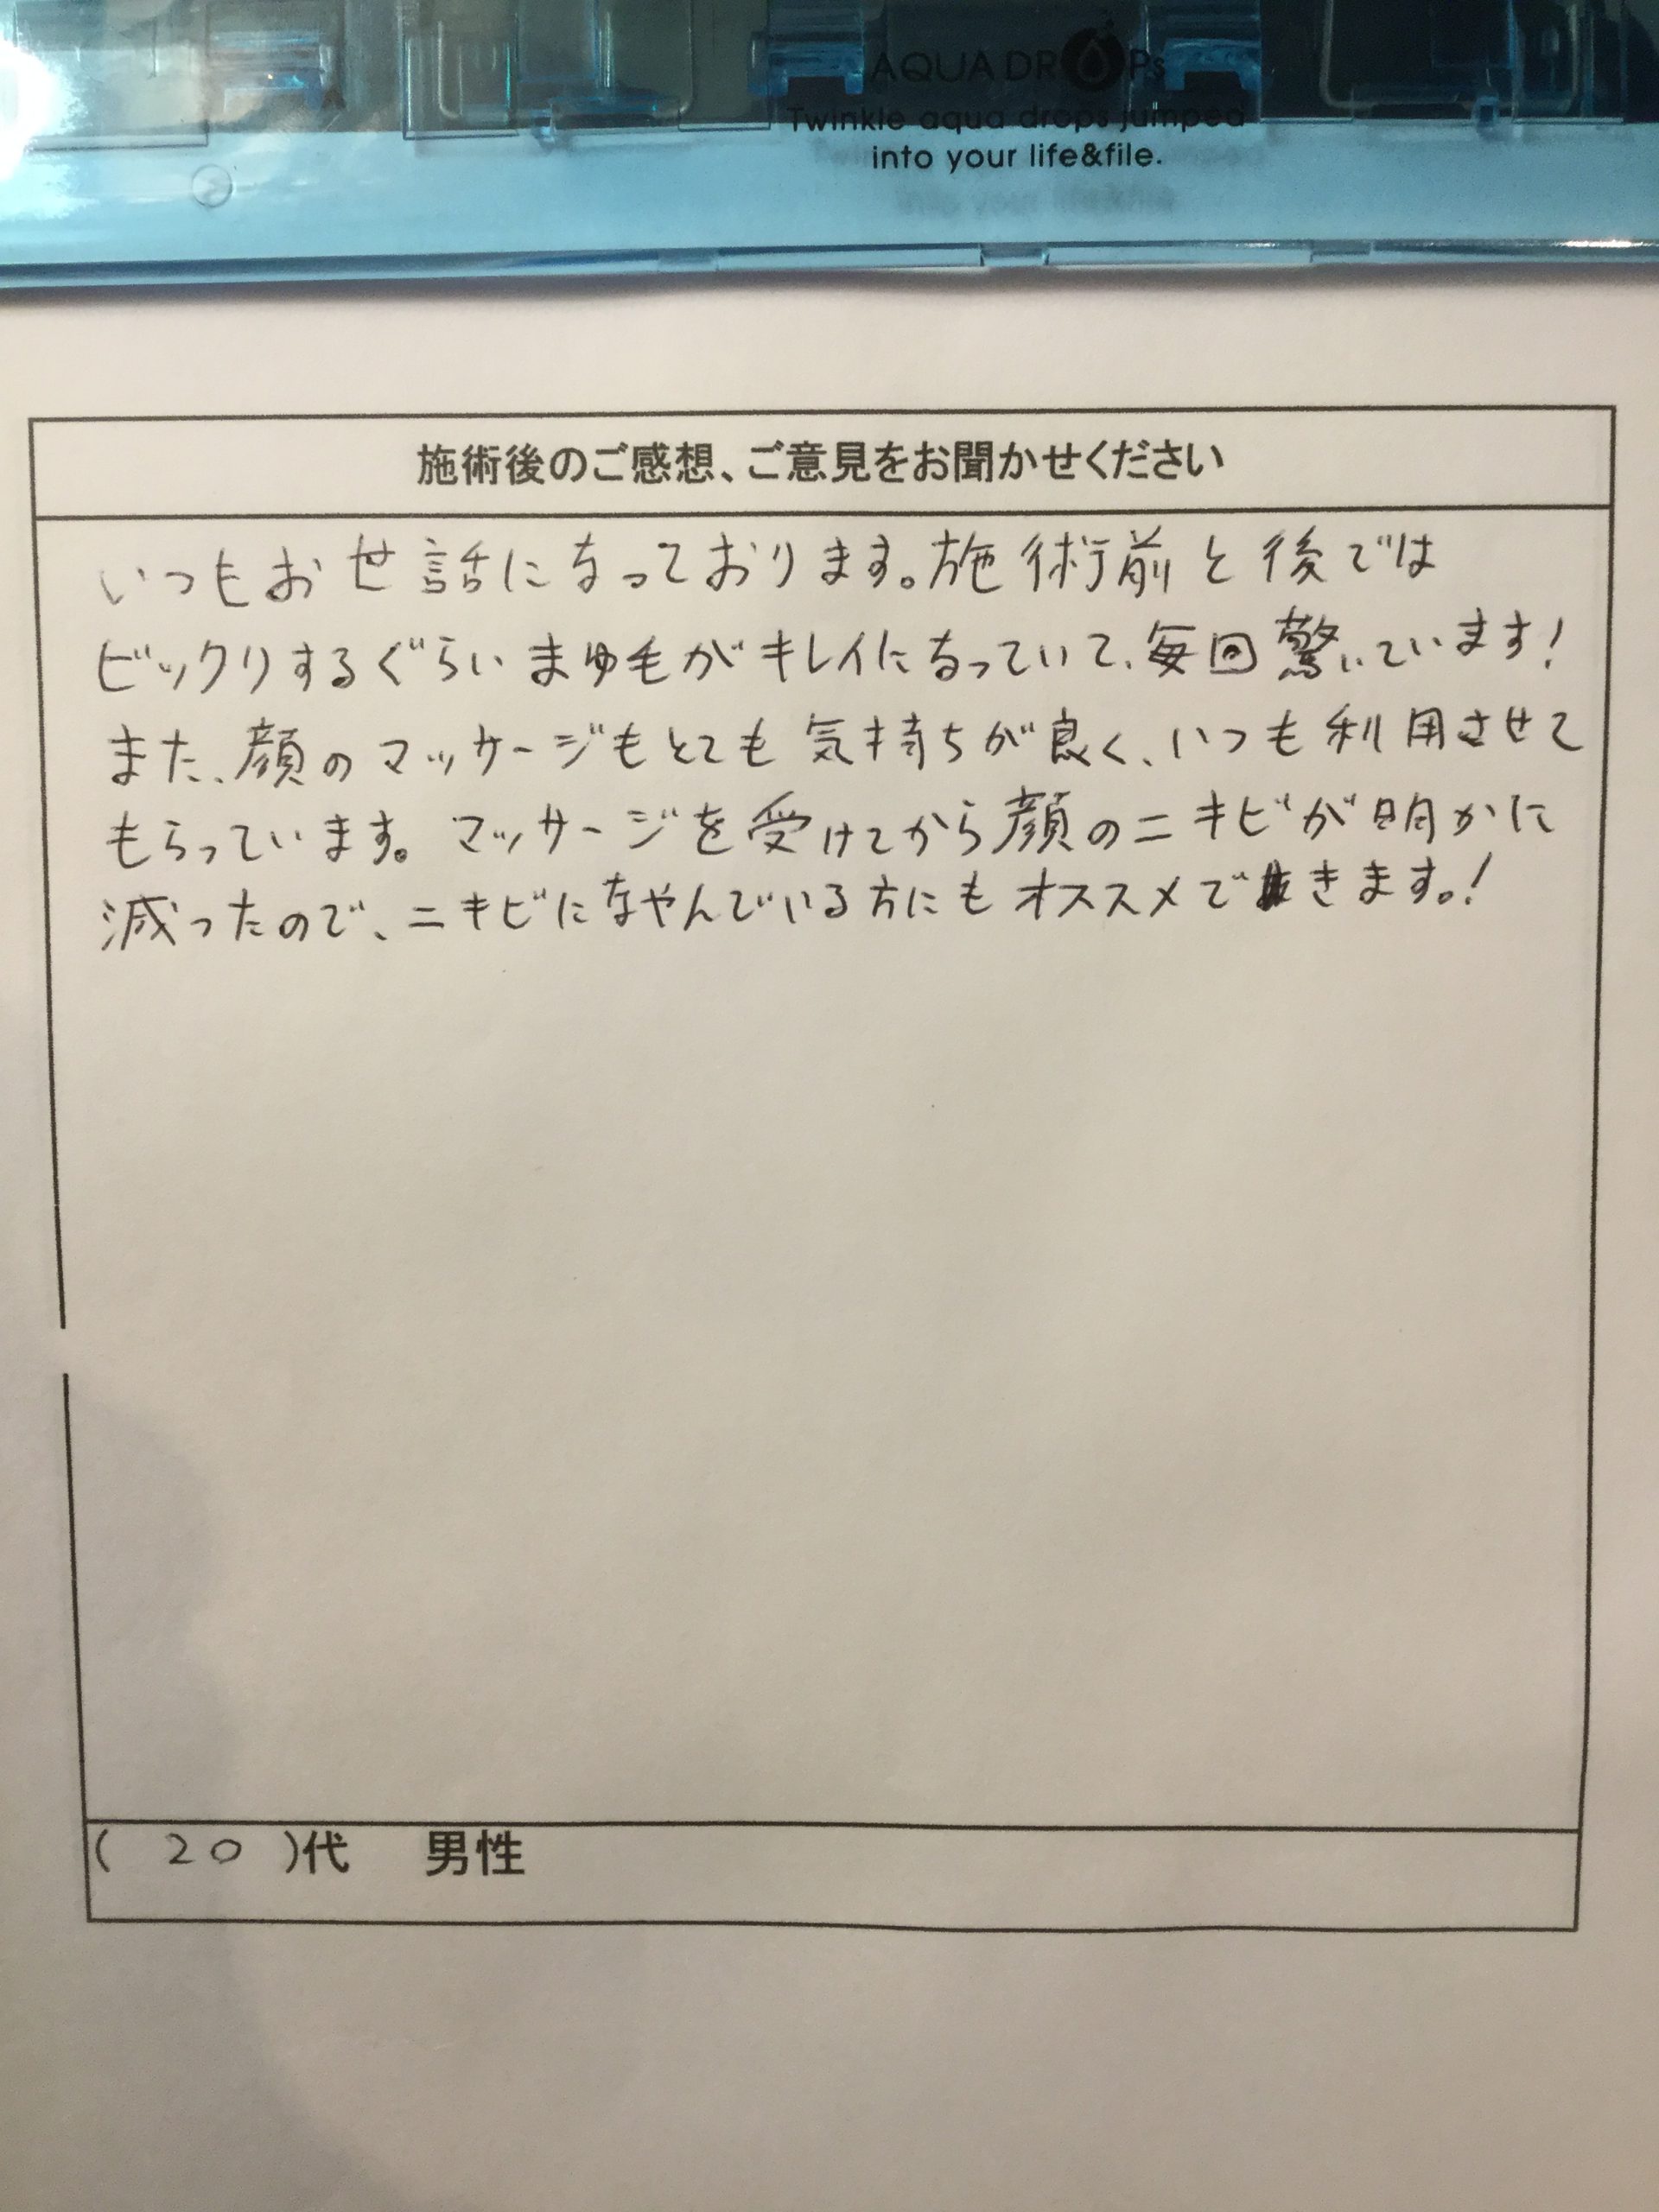 AQUA DROPs
Twinkle aqua drops jumped
into your life&file.
施術後のご感想、ご意見をお聞かせください
いつもお世話になっております。施術前と後では
ビックリするぐらいまゆ毛がキレイになっていて、毎回驚いています!
また、顔のマッサージもとても気持ちが良く、いつも利用させて
もらっています。マッサージを受けてから顔のニキビが明かに
減ったので、ニキビになやんでいる方にもオススメできます。!
( 20 )代 男性